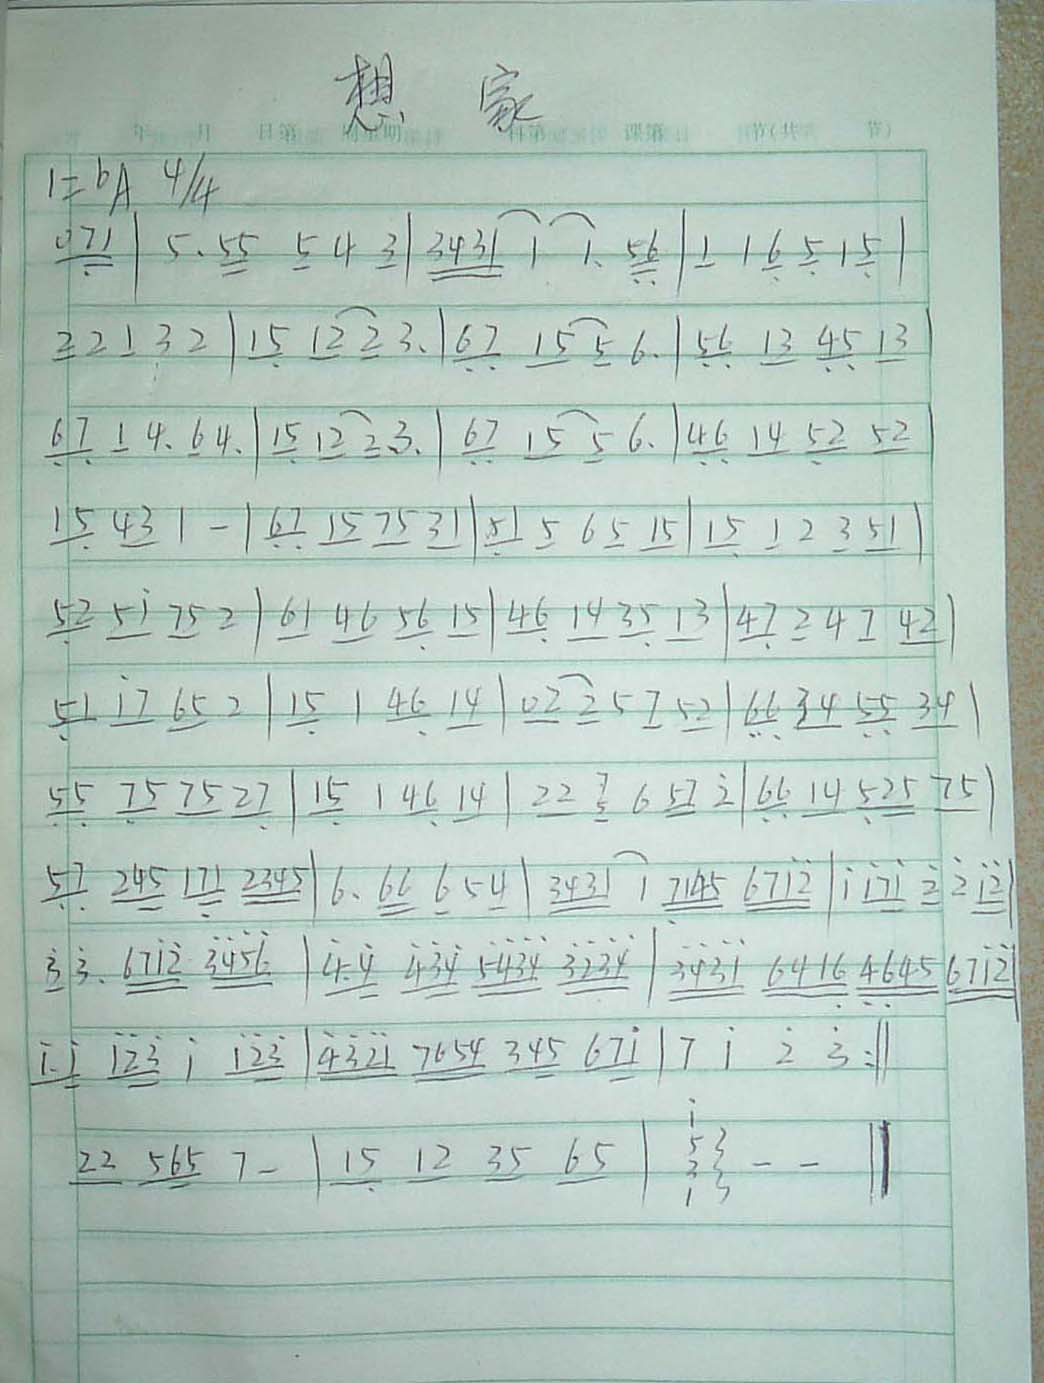 想 家
1=bA 4/4
071 | 5. 55 5 4 3 | 3431 1 1. 56 | 1 1 6 5 1 5 |
2 2 1 3 2 | 15 12 2 3. | 67 15 5 6. | 56 13 45 13 |
67 1 4. 6 4. | 15 12 2 3. | 67 15 5 6. | 46 14 52 52 |
15 43 1 - | 67 15 75 31 | 51 5 6 5 15 | 15 1 2 3 51 |
52 5i 75 2 | 61 46 56 15 | 46 14 35 13 | 47 2 4 7 42 |
51 i7 65 2 | 15 1 46 14 | 02 2 5 7 52 | 66 34 55 34 |
55 75 75 27 | 15 1 46 14 | 22 7 6 57 2̇ | 66 14 525 75 |
57 245 171 2345 | 6. 66 6 5 4 | 3431 1 7145 67i2̇ | i i7i 2̇ 2̇ i2̇ |
3̇ 3̇. 67i2̇ 3̇4̇5̇6̇ | 4̇. 4̇ 4̇3̇4̇ 5̇4̇3̇4̇ 3̇2̇3̇4̇ | 3̇4̇3̇i 6416 4645 67i2̇ |
i. i i2̇3̇ i i2̇3̇ | 4̇3̇2̇i 7654 345 67i | 7 i 2̇ 3̇ :||
22 565 7 - | 15 12 35 65 | i 5 3 1 - - ||